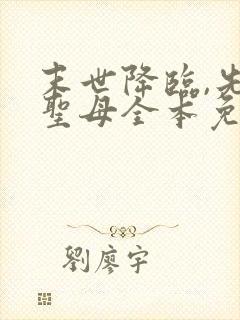 末世降臨,先
聖母全本免
劉廖宇